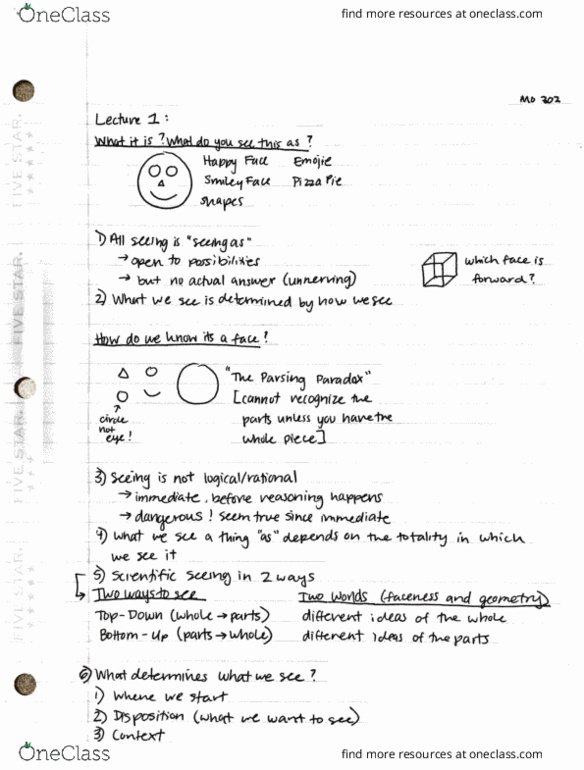 OneClass
find more resources at oneclass.com
MO 302
Lecture 1:
What it is? What do you see this as?
Happy Face Emojie
Smiley Face Pizza Pie
shapes
1) All seeing is "seeing as"
→ open to possibilities
→ but no actual answer (unnerving)
which face is
forward?
2) What we see is determined by how we see
How do we know its a face?
"The Parsing Paradox"
[cannot recognize the
parts unless you have the
whole piece]
circle
not
eye!
3) Seeing is not logical/rational
→ immediate, before reasoning happens
→ dangerous! seem true since immediate
4) What we see a thing "as" depends on the totality in which
we see it
5) Scientific seeing in 2 ways
Two ways to see Two Worlds (faceness and geometry)
Top-Down (whole → parts) different ideas of the whole
Bottom-Up (parts → whole) different ideas of the parts
6) What determines what we see?
1) Where we start
2) Disposition (what we want to see)
3) Context
FIVE STAR.
FIVE STAR.
FIVE STAR.
FIVE STAR.
OneClass
find more resources at oneclass.com